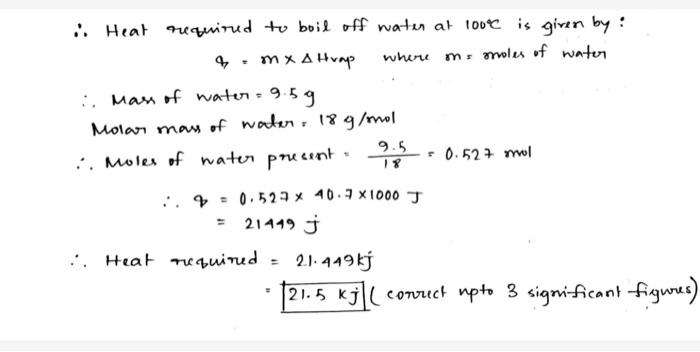 ∴ Heat required to boil off water at 100°C is given by :
q = m × ΔHvap where m = moles of water
∴ Mass of water = 9.5 g
Molar mass of water = 18 g/mol
∴ Moles of water present = 9.5/18 = 0.527 mol
∴ q = 0.527 × 40.7 × 1000 J
= 21449 j
∴ Heat required = 21.449 kj
= 21.5 kj ( correct upto 3 significant figures)